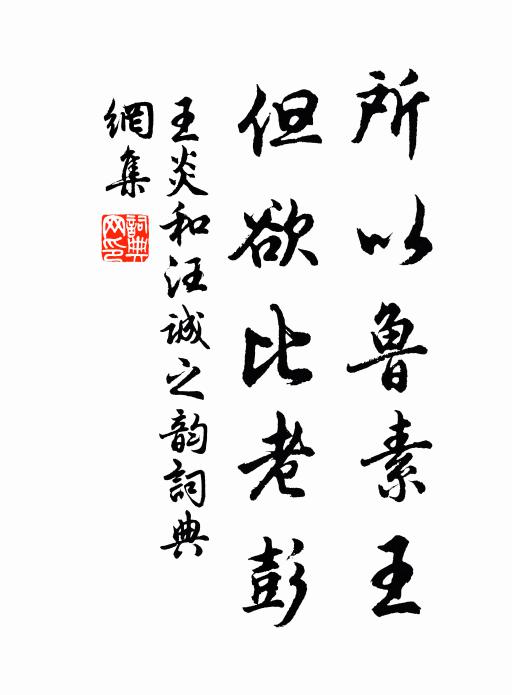 所以魯素王
但欲比老彭
王炎和汪诚之韵詞典
網集
詞典网印